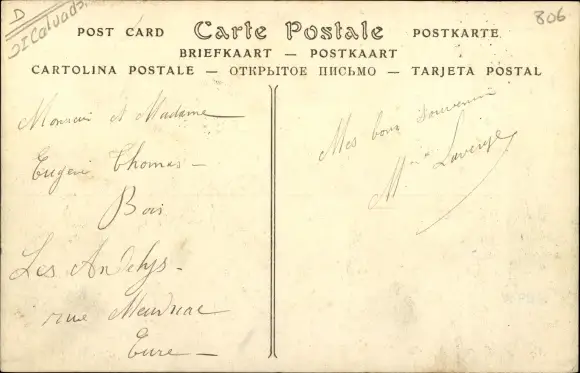 D
Calvados
806
POST CARD Carte Postale POSTKARTE
BRIEFKAART — POSTKAART
CARTOLINA POSTALE — ОТКРЫТОЕ ПИСЬМО — TARJETA POSTAL
Monsieur et Madame
Eugène Thomas —
Bois
Les Andelys -
rue
Eure —
Mes bons souvenirs